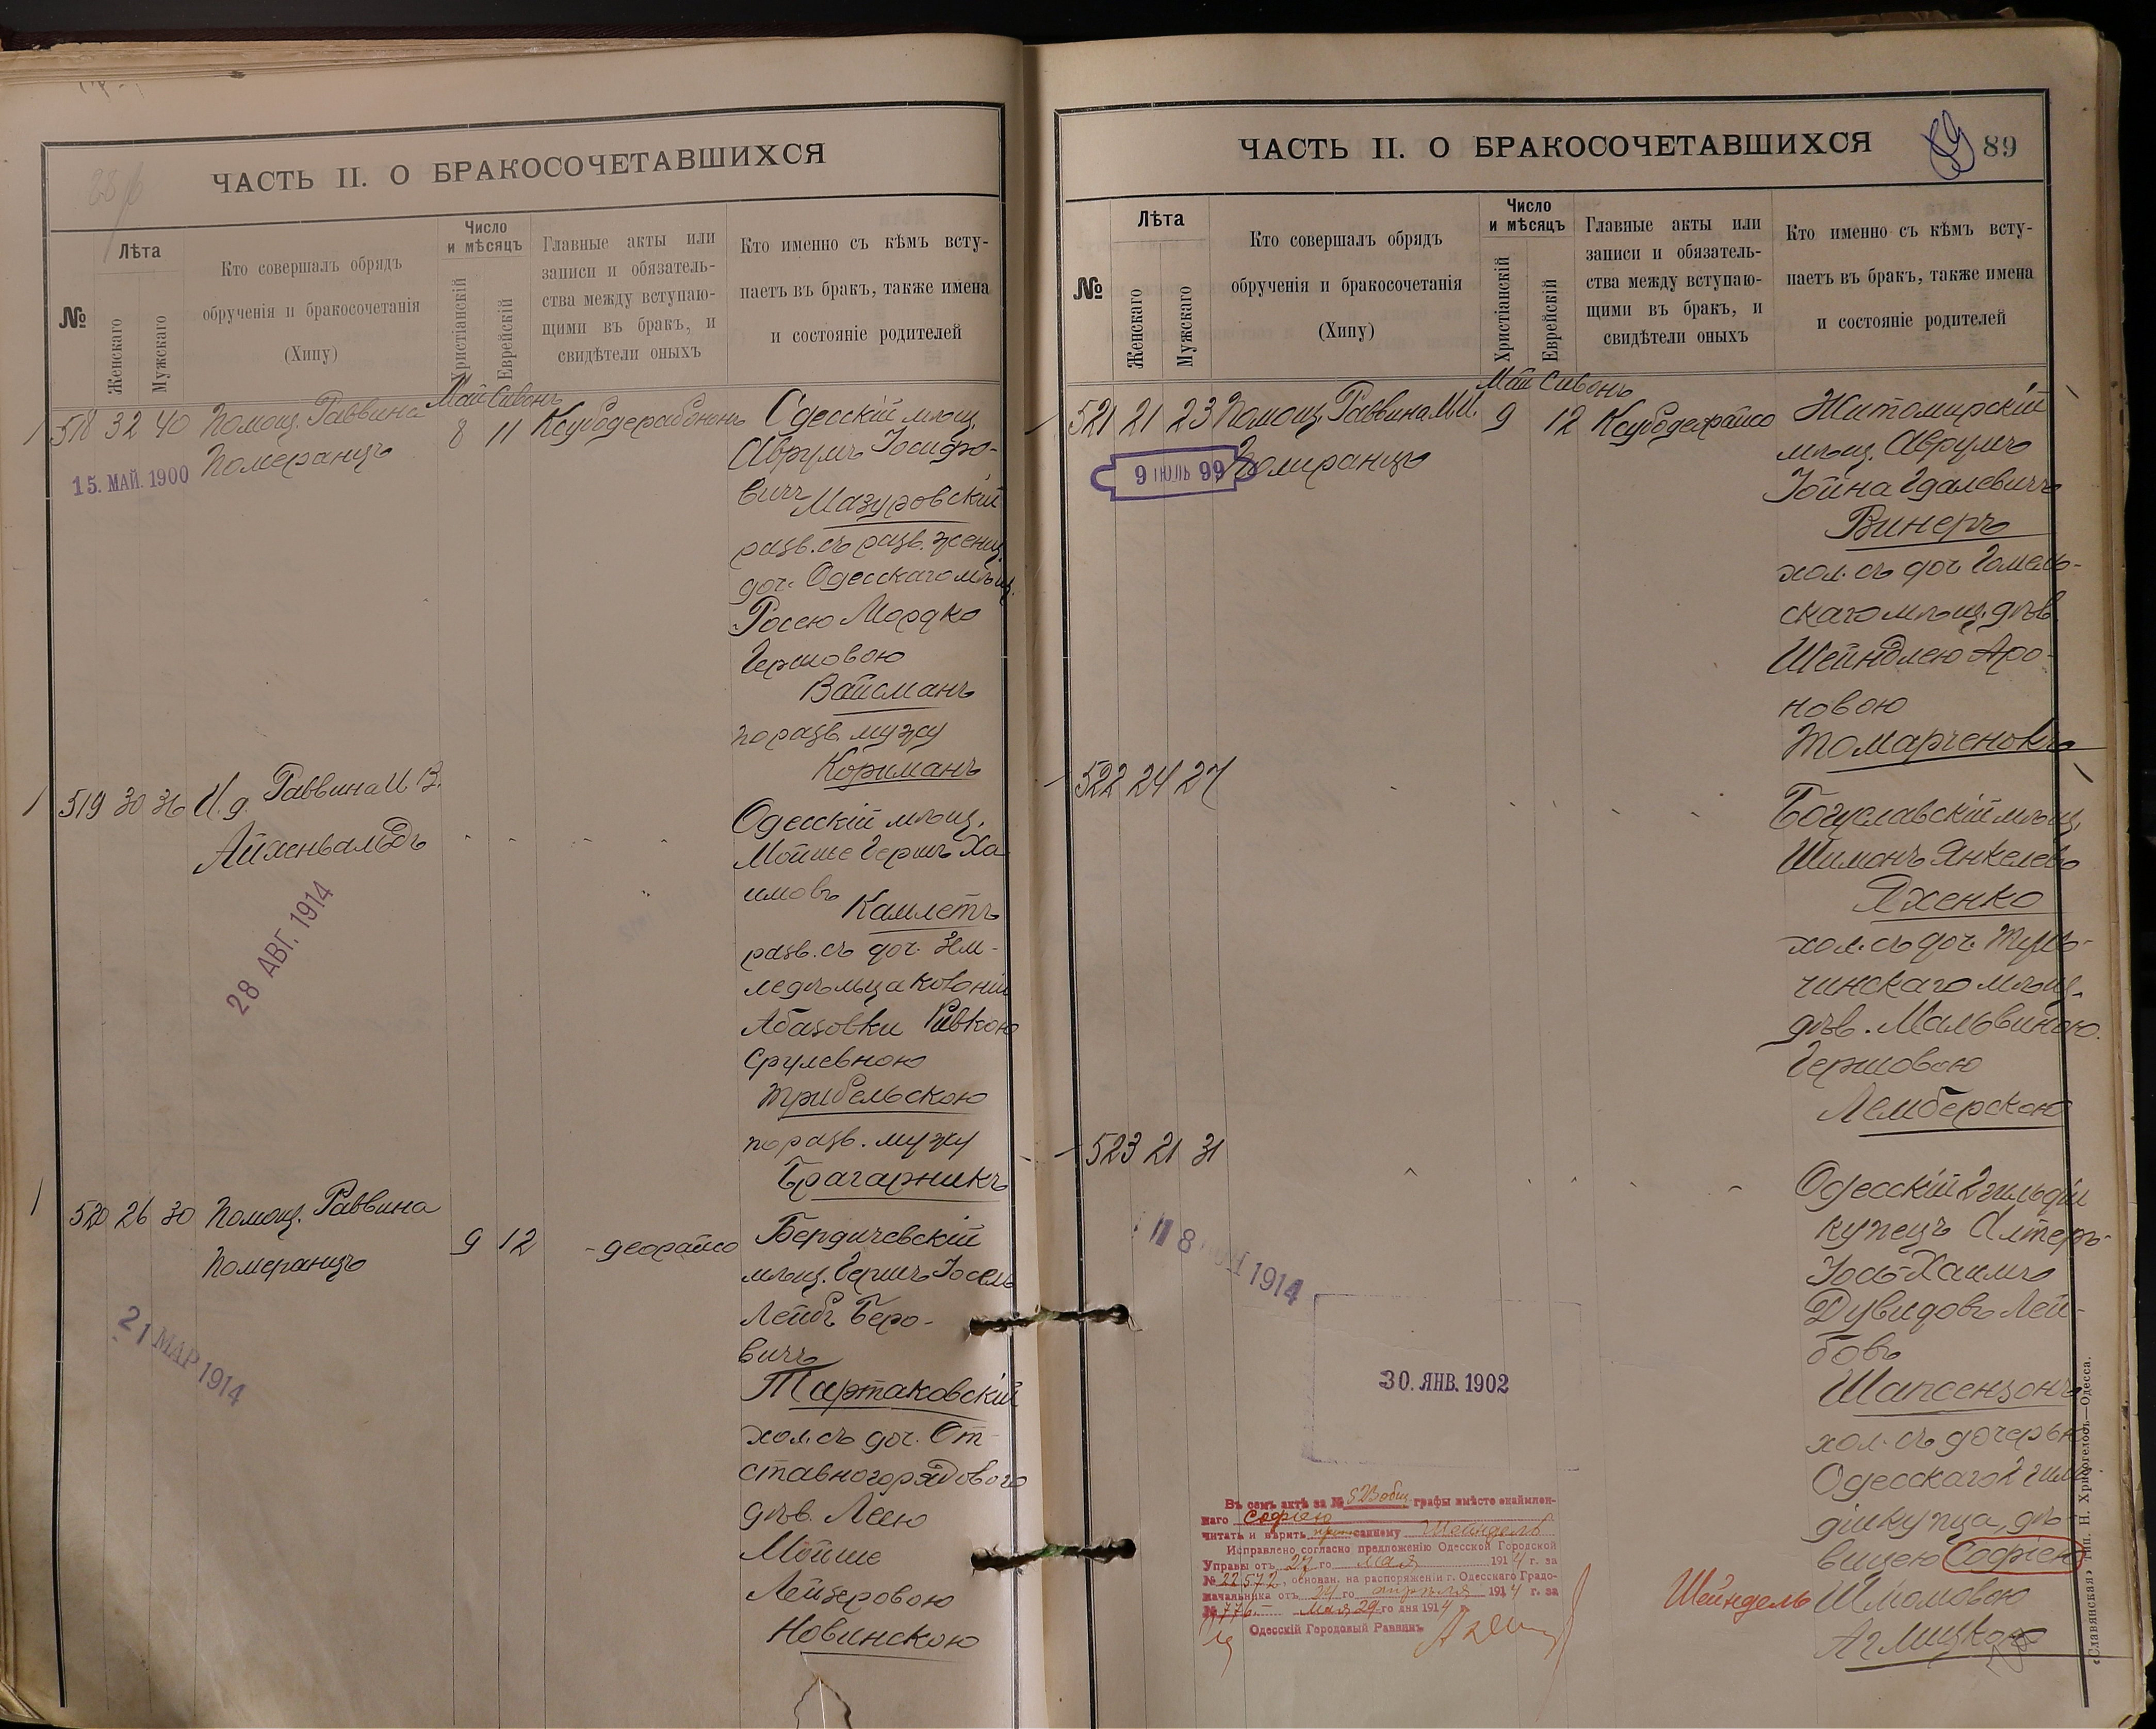 ЧАСТЬ II. О БРАКОСОЧЕТАВШИХСЯ
№
Лѣта
Женскаго
Мужскаго
Кто совершалъ обрядъ
обрученія и бракосочетанія
(Хипу)
Число
и мѣсяцъ
Христіанскій
Еврейскій
Главные акты или
записи и обязатель-
ства между вступаю-
щими въ бракъ, и
свидѣтели оныхъ
Кто именно съ кѣмъ всту-
паетъ въ бракъ, также имена
и состояніе родителей
Май Сивонъ
518 32 40 Помощ. Раввина
Померанцъ
8 11
15. МАЙ. 1900
Одесскій мѣщ.
Аврумъ Іосифо-
вичъ Мазуровскій
разв. съ разв. женщ.
доч. Одесскаго мѣщ.
Росею Мордко
Гершовою
Вайсманъ
по разв. мужу
Кориманъ
519 30 36 И. д. Раввина И. В.
Айхенвальдъ
28 АВГ. 1914
Одесскій мѣщ.
Мойше Гершъ Ха
имовъ
Камлетъ
разв. съ доч. Зем-
ледѣльца колоніи
Абазовки Ривкою
Срулевною
Трибельскою
по разв. мужу
Брагарникъ
520 26 30 Помощ. Раввина
Померанцъ
9 12 - деорайсо
21 МАР 1914
Бердичевскій
мѣщ. Гершъ Іосель
Лейбъ Беро-
вичъ
Тартаковскій
хол. съ доч. От-
ставного рядового
дѣв. Леею
Мойше
Лейзеровою
Новинскою
ЧАСТЬ II. О БРАКОСОЧЕТАВШИХСЯ
89
№
Лѣта
Женскаго
Мужскаго
Кто совершалъ обрядъ
обрученія и бракосочетанія
(Хипу)
Число
и мѣсяцъ
Христіанскій
Еврейскій
Главные акты или
записи и обязатель-
ства между вступаю-
щими въ бракъ, и
свидѣтели оныхъ
Кто именно съ кѣмъ всту-
паетъ въ бракъ, также имена
и состояніе родителей
Май Сивонъ
521 21 23 Помощ. Раввина М. И.
Померанцъ
9 12 Ксубодеорайсо
9 ІЮЛЬ 99
Житомирскій
мѣщ. Аврумъ
Іойна Гдалевичъ
Винеръ
хол. съ доч. Гомель-
скаго мѣщ. дѣв.
Шейндлею Аро-
новою
Томарченокъ
522 24 27
Богуславскій мѣщ.
Шимонъ Янкелевъ
Яхенко
хол. съ доч. Туль-
чинскаго мѣщ.
дѣв. Мальвиною
Гершовою
Лемберскою
523 21 31
1914
30. ЯНВ. 1902
Одесскій 2 гильдіи
купецъ Алтеръ-
Іось-Хаимъ
Дувидовъ Лей-
бовъ
Шапсензонъ
хол. съ дочерью
Одесскаго 2 гиль-
діи купца, дѣ-
вицею Софіею
Шейндель Шломовою
Въ семъ актѣ за № 523 общ. графы вмѣсто окаймлен-
наго Софіею
читать и вѣрить приписанному Шейндель
Исправлено согласно предложенію Одесской Городской
Управы отъ 27 го мая 1914 г. за
№ 22572, основан. на распоряженіи г. Одесскаго Градо-
начальника отъ 24 го апрѣля 1914 г. за
№ 776. Мая 29 го дня 1914 г.
Одесскій Городовый Раввинъ
«Славянская» тип. Н. Хрисогелосъ—Одесса.